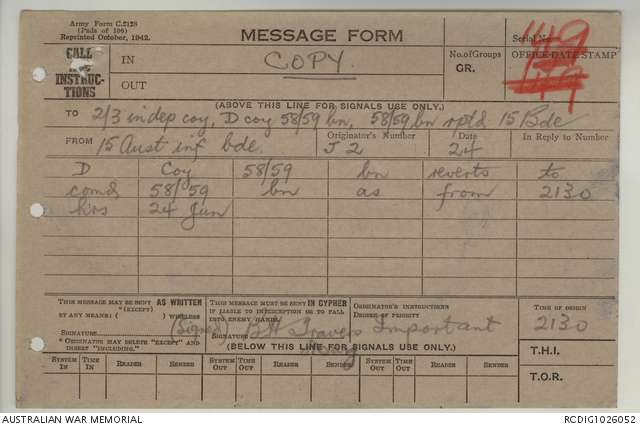 Army Form C.2128
(Pads of 100)
Reprinted October, 1942.
MESSAGE FORM
Serial No.
CALL
AND
INSTRUC-
TIONS
IN
COPY.
No. of Groups
GR.
OFFICE DATE STAMP
149
OUT
(ABOVE THIS LINE FOR SIGNALS USE ONLY.)
TO 2/3 indep coy, D coy 58/59 bn, 58/59 bn rptd 15 Bde
FROM 15 Aust inf bde.
Originator's Number
J2
Date
24
In Reply to Number
D Coy 58/59 bn reverts to
comd 58/59 bn as from 2130
hrs 24 Jun
THIS MESSAGE MAY BE SENT AS WRITTEN
*(EXCEPT)
BY ANY MEANS ( ) WIRELESS
SIGNATURE
* ORIGINATOR MAY DELETE "EXCEPT" AND
INSERT "INCLUDING."
THIS MESSAGE MUST BE SENT IN CYPHER
IF LIABLE TO INTERCEPTION OR TO FALL
INTO ENEMY HANDS.
SIGNATURE
(Signed) BH Travers
ORIGINATOR'S INSTRUCTIONS
DEGREE OF PRIORITY
Important
TIME OF ORIGIN
2130
(BELOW THIS LINE FOR SIGNALS USE ONLY.)
T.H.I.
SYSTEM IN TIME IN READER SENDER SYSTEM OUT TIME OUT READER SENDER SYSTEM OUT TIME OUT READER SENDER
T.O.R.
AUSTRALIAN WAR MEMORIAL
RCDIG1026052